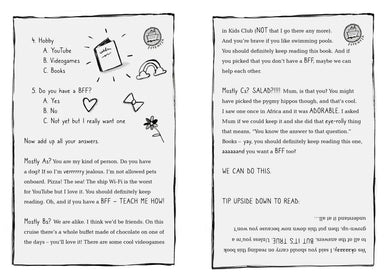 4. Hobby
A. YouTube
B. Videogames
C. Books
5. Do you have a BFF?
A. Yes
B. No
C. Not yet but I really want one
Now add up all your answers.
Mostly As? You are my kind of person. Do you have
a dog? If so I'm verrrrrry jealous. I'm not allowed pets
onboard. Pizza! The sea! The ship Wi-Fi is the worst
for YouTube but I love it. You should definitely keep
reading. Oh, and if you have a BFF – TEACH ME HOW!
Mostly Bs? We are alike. I think we'd be friends. On this
cruise there's a whole buffet made of chocolate on one of
the days – you'll love it! There are some cool videogames
in Kids Club (NOT that I go there any more).
And you're brave if you like swimming pools.
You should definitely keep reading this book. And if
you picked that you don't have a BFF, maybe we can
help each other.
Mostly Cs? SALAD?!!!! Mum, is that you? You might
have picked the pygmy hippos though, and that's cool.
I saw one once in Africa and it was ADORABLE. I asked
Mum if we could keep it and she did that eye-rolly thing
that means, "You know the answer to that question."
Books – yay, you should definitely keep reading this one,
aaaaand you want a BFF too?
WE CAN DO THIS.
TIP UPSIDE DOWN TO READ:
Thaaaanks. You should carry on reading this book
to all of the answers, BUT IT'S TRUE. Unless you're a
grown-up, then put this down now because you won't
understand it at all...